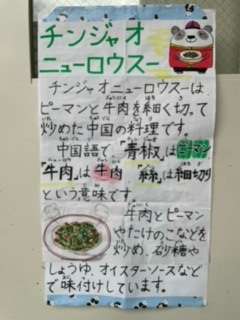 チンジャオ
ニューロウスー
チンジャオニューロウスーは
ピーマンと牛肉を細く切って
炒めた中国の料理です。
中国語で『青椒』はピーマン
『牛肉』は牛肉『絲』は細切り
という意味です。
牛肉とピーマン
やたけのこなどを
炒め、砂糖や
しょうゆ、オイスターソースなど
で味付けしています。